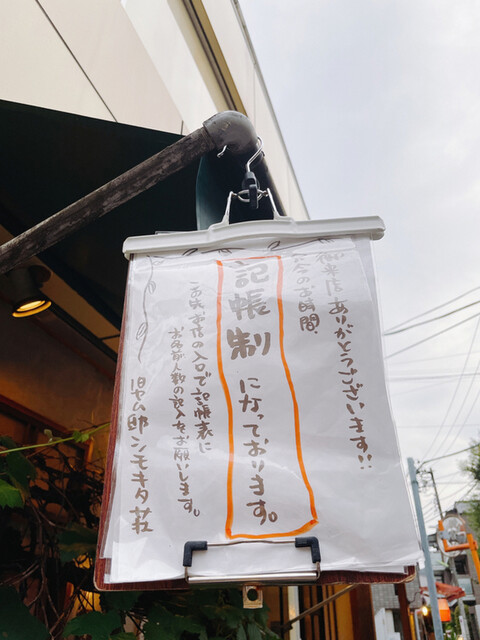 御来店ありがとうございます!!
只今のお時間、
記帳制になっております。
この先お店の入口で記帳表に
お名前人数の記入をお願いします。
旧ヤム邸シモキタ荘